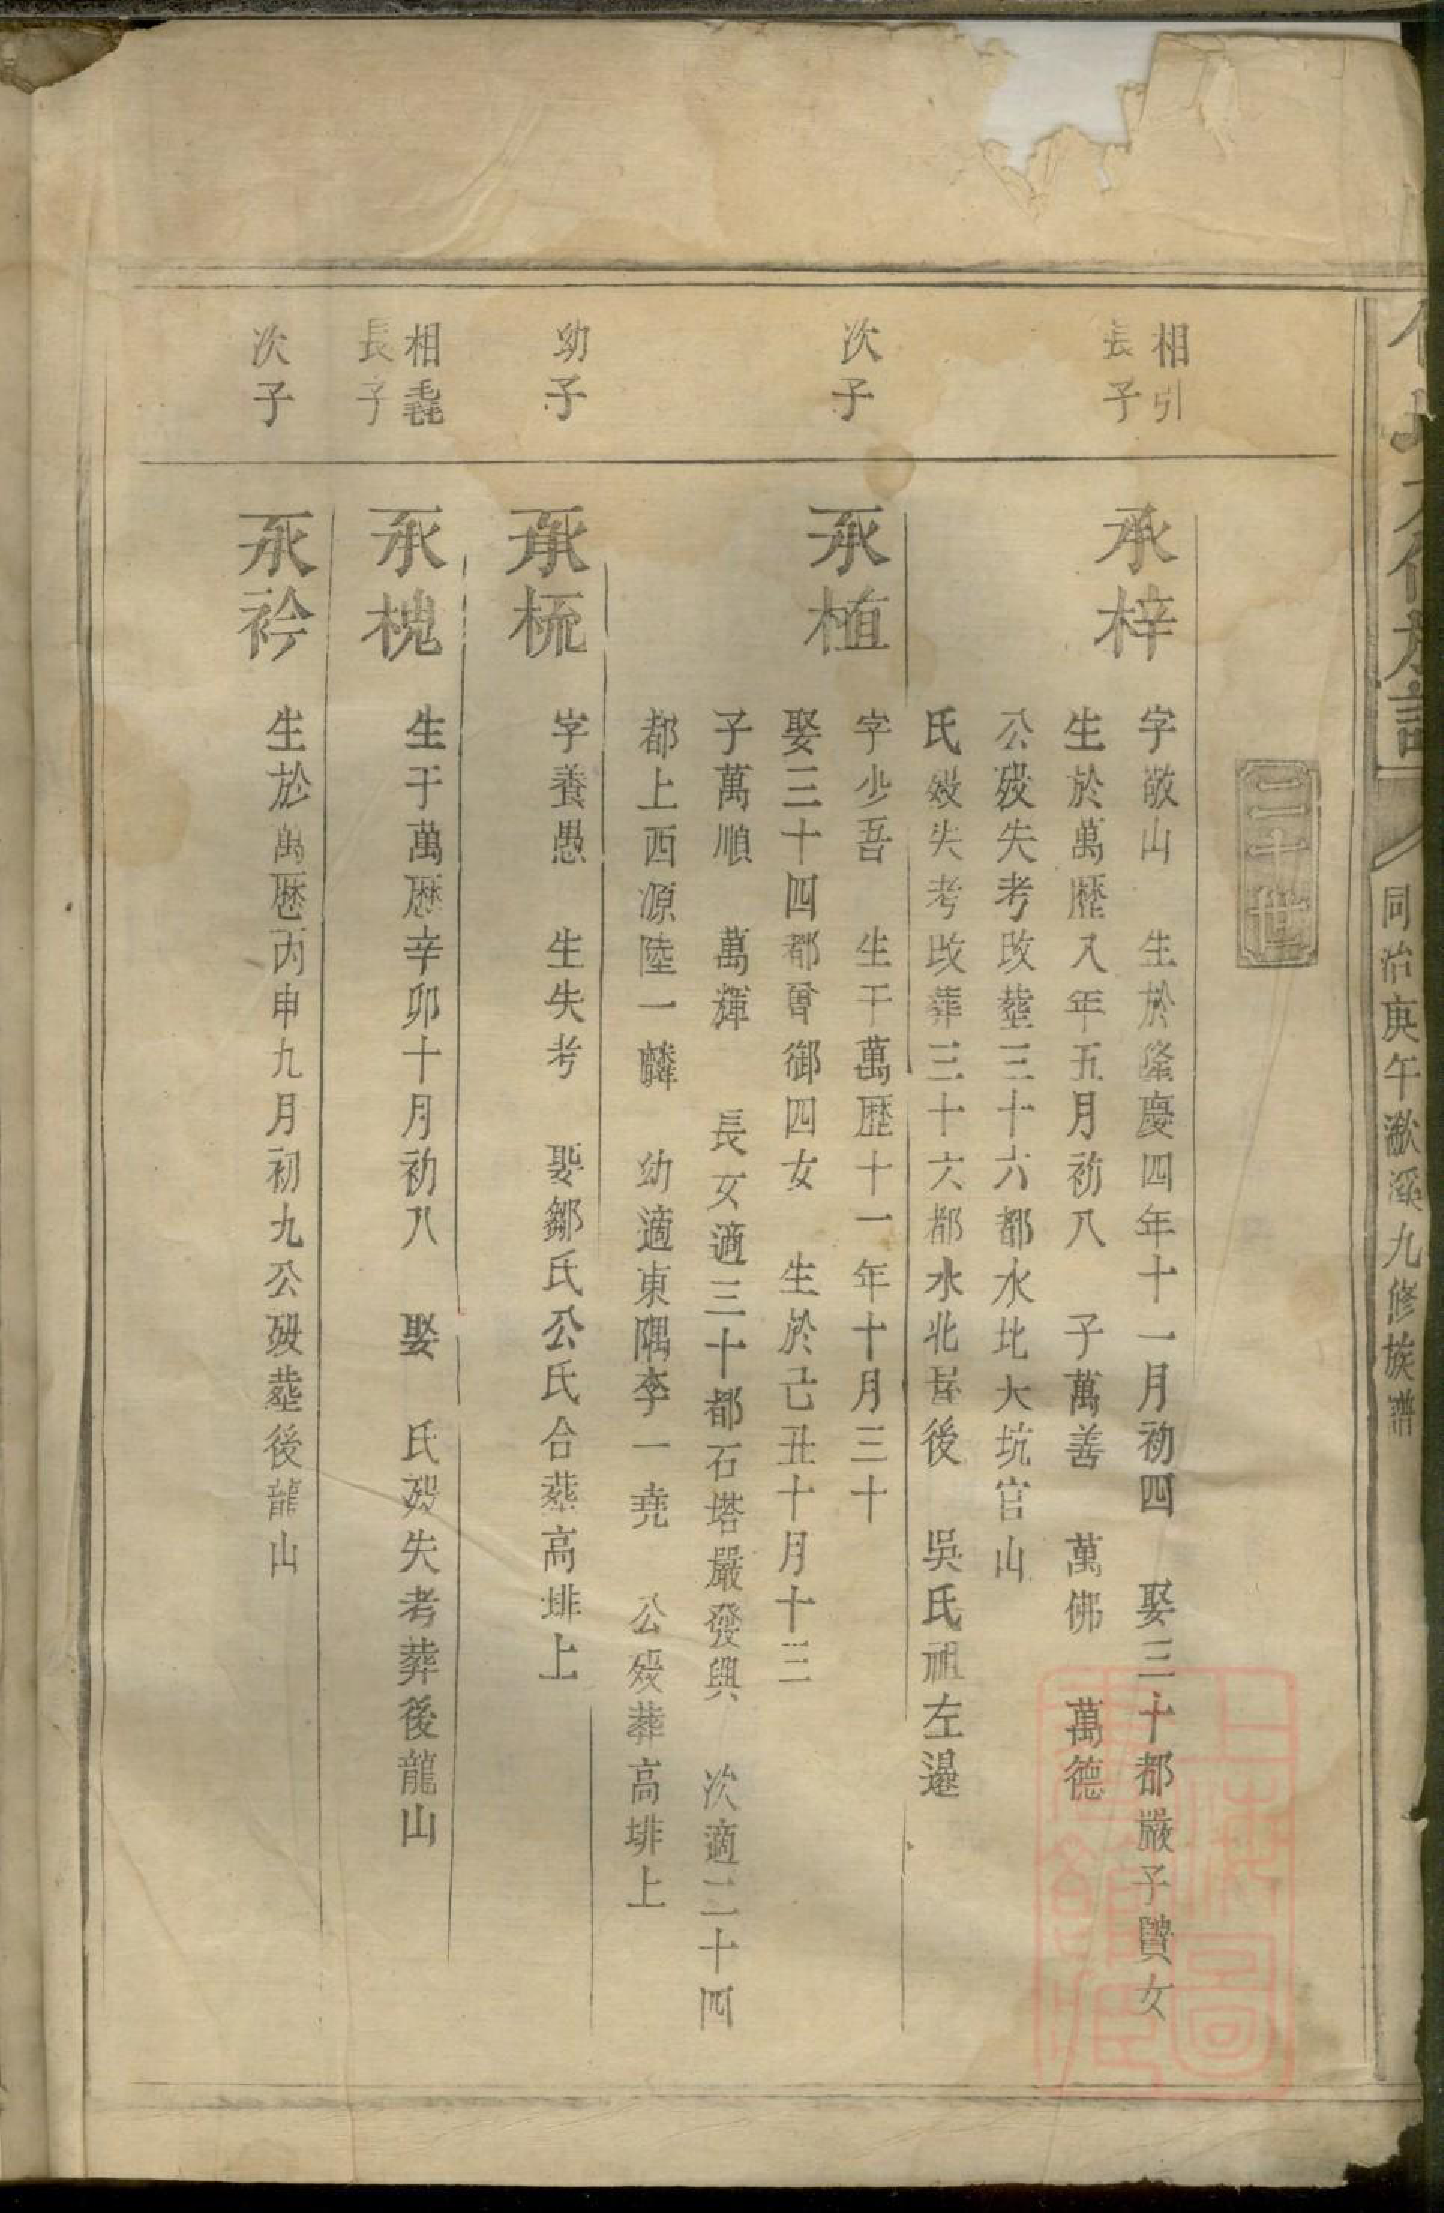 同治庚午漱溪九修族譜
二十世
相引
長子
承梓
字敬山 生於隆慶四年十一月初四 娶三十都嚴子贊女
生於萬歷八年五月初八 子萬善 萬佛 萬德
公歿失考改塟三十六都水北大坑官山
氏歿失考改葬三十六都水北後 吳氏祖左邊
次子
承植
字少吾 生于萬歷十一年十月三十
娶三十四都曾御四女 生於己丑十月十三
子萬順 萬輝 長女適三十都石塔嚴發興 次適二十四
都上西源陸一麟 幼適東隅李一堯 公歿葬高排上
幼子
承梳
字養愚 生失考 娶鄒氏公氏合葬高排上
相毳
長子
承槐
生于萬歷辛卯十月初八 娶 氏歿失考葬後龍山
次子
承衿
生於萬歷丙申九月初九公歿塟後龍山
上海圖書館藏